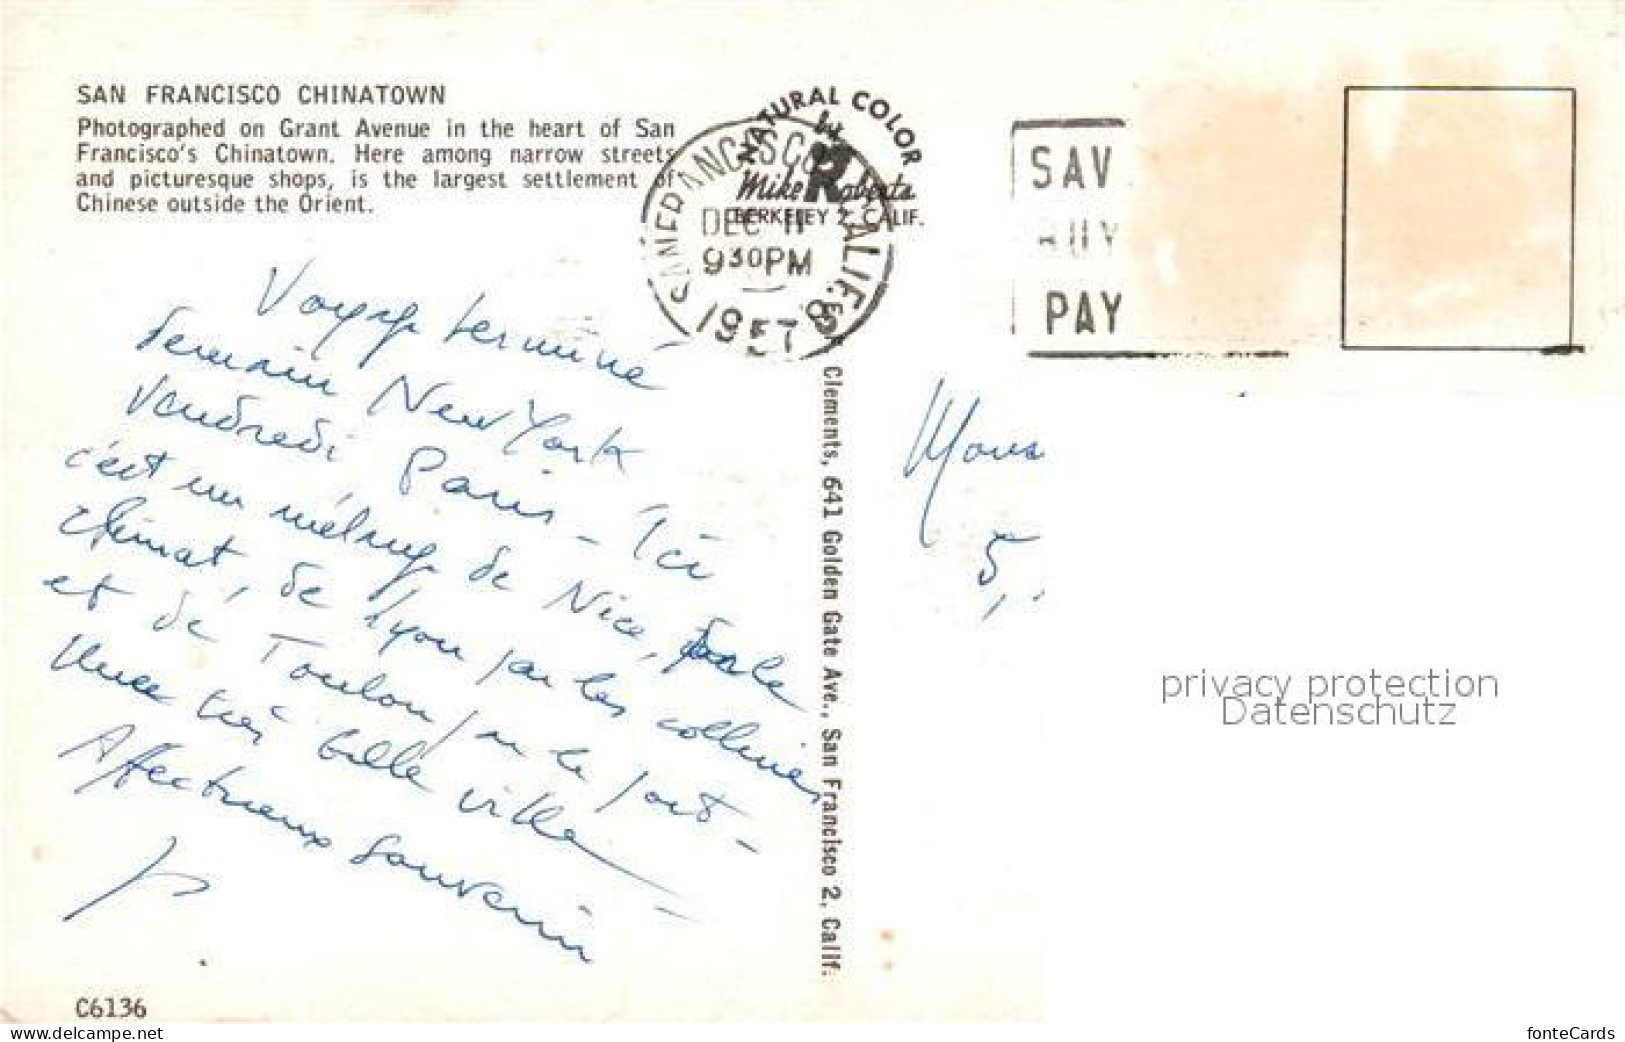 SAN FRANCISCO CHINATOWN
Photographed on Grant Avenue in the heart of San
Francisco's Chinatown. Here among narrow streets
and picturesque shops, is the largest settlement of
Chinese outside the Orient.
NATURAL COLOR
Mike Roberts
BERKELEY 2, CALIF.
SAN FRANCISCO CALIF.
DEC 11
930PM
1957
SAV
PAY
Voyage terminé
demain New York
Vendredi Paris - Ici
c'est un mélange de Nice, par le
climat, de Lyon par les collines
et de Toulon par le port -
Une très belle ville -
Affectueux souvenir
Clements, 641 Golden Gate Ave., San Francisco 2, Calif.
Mons
5,
privacy protection
Datenschutz
C6136
www.delcampe.net
fonteCards